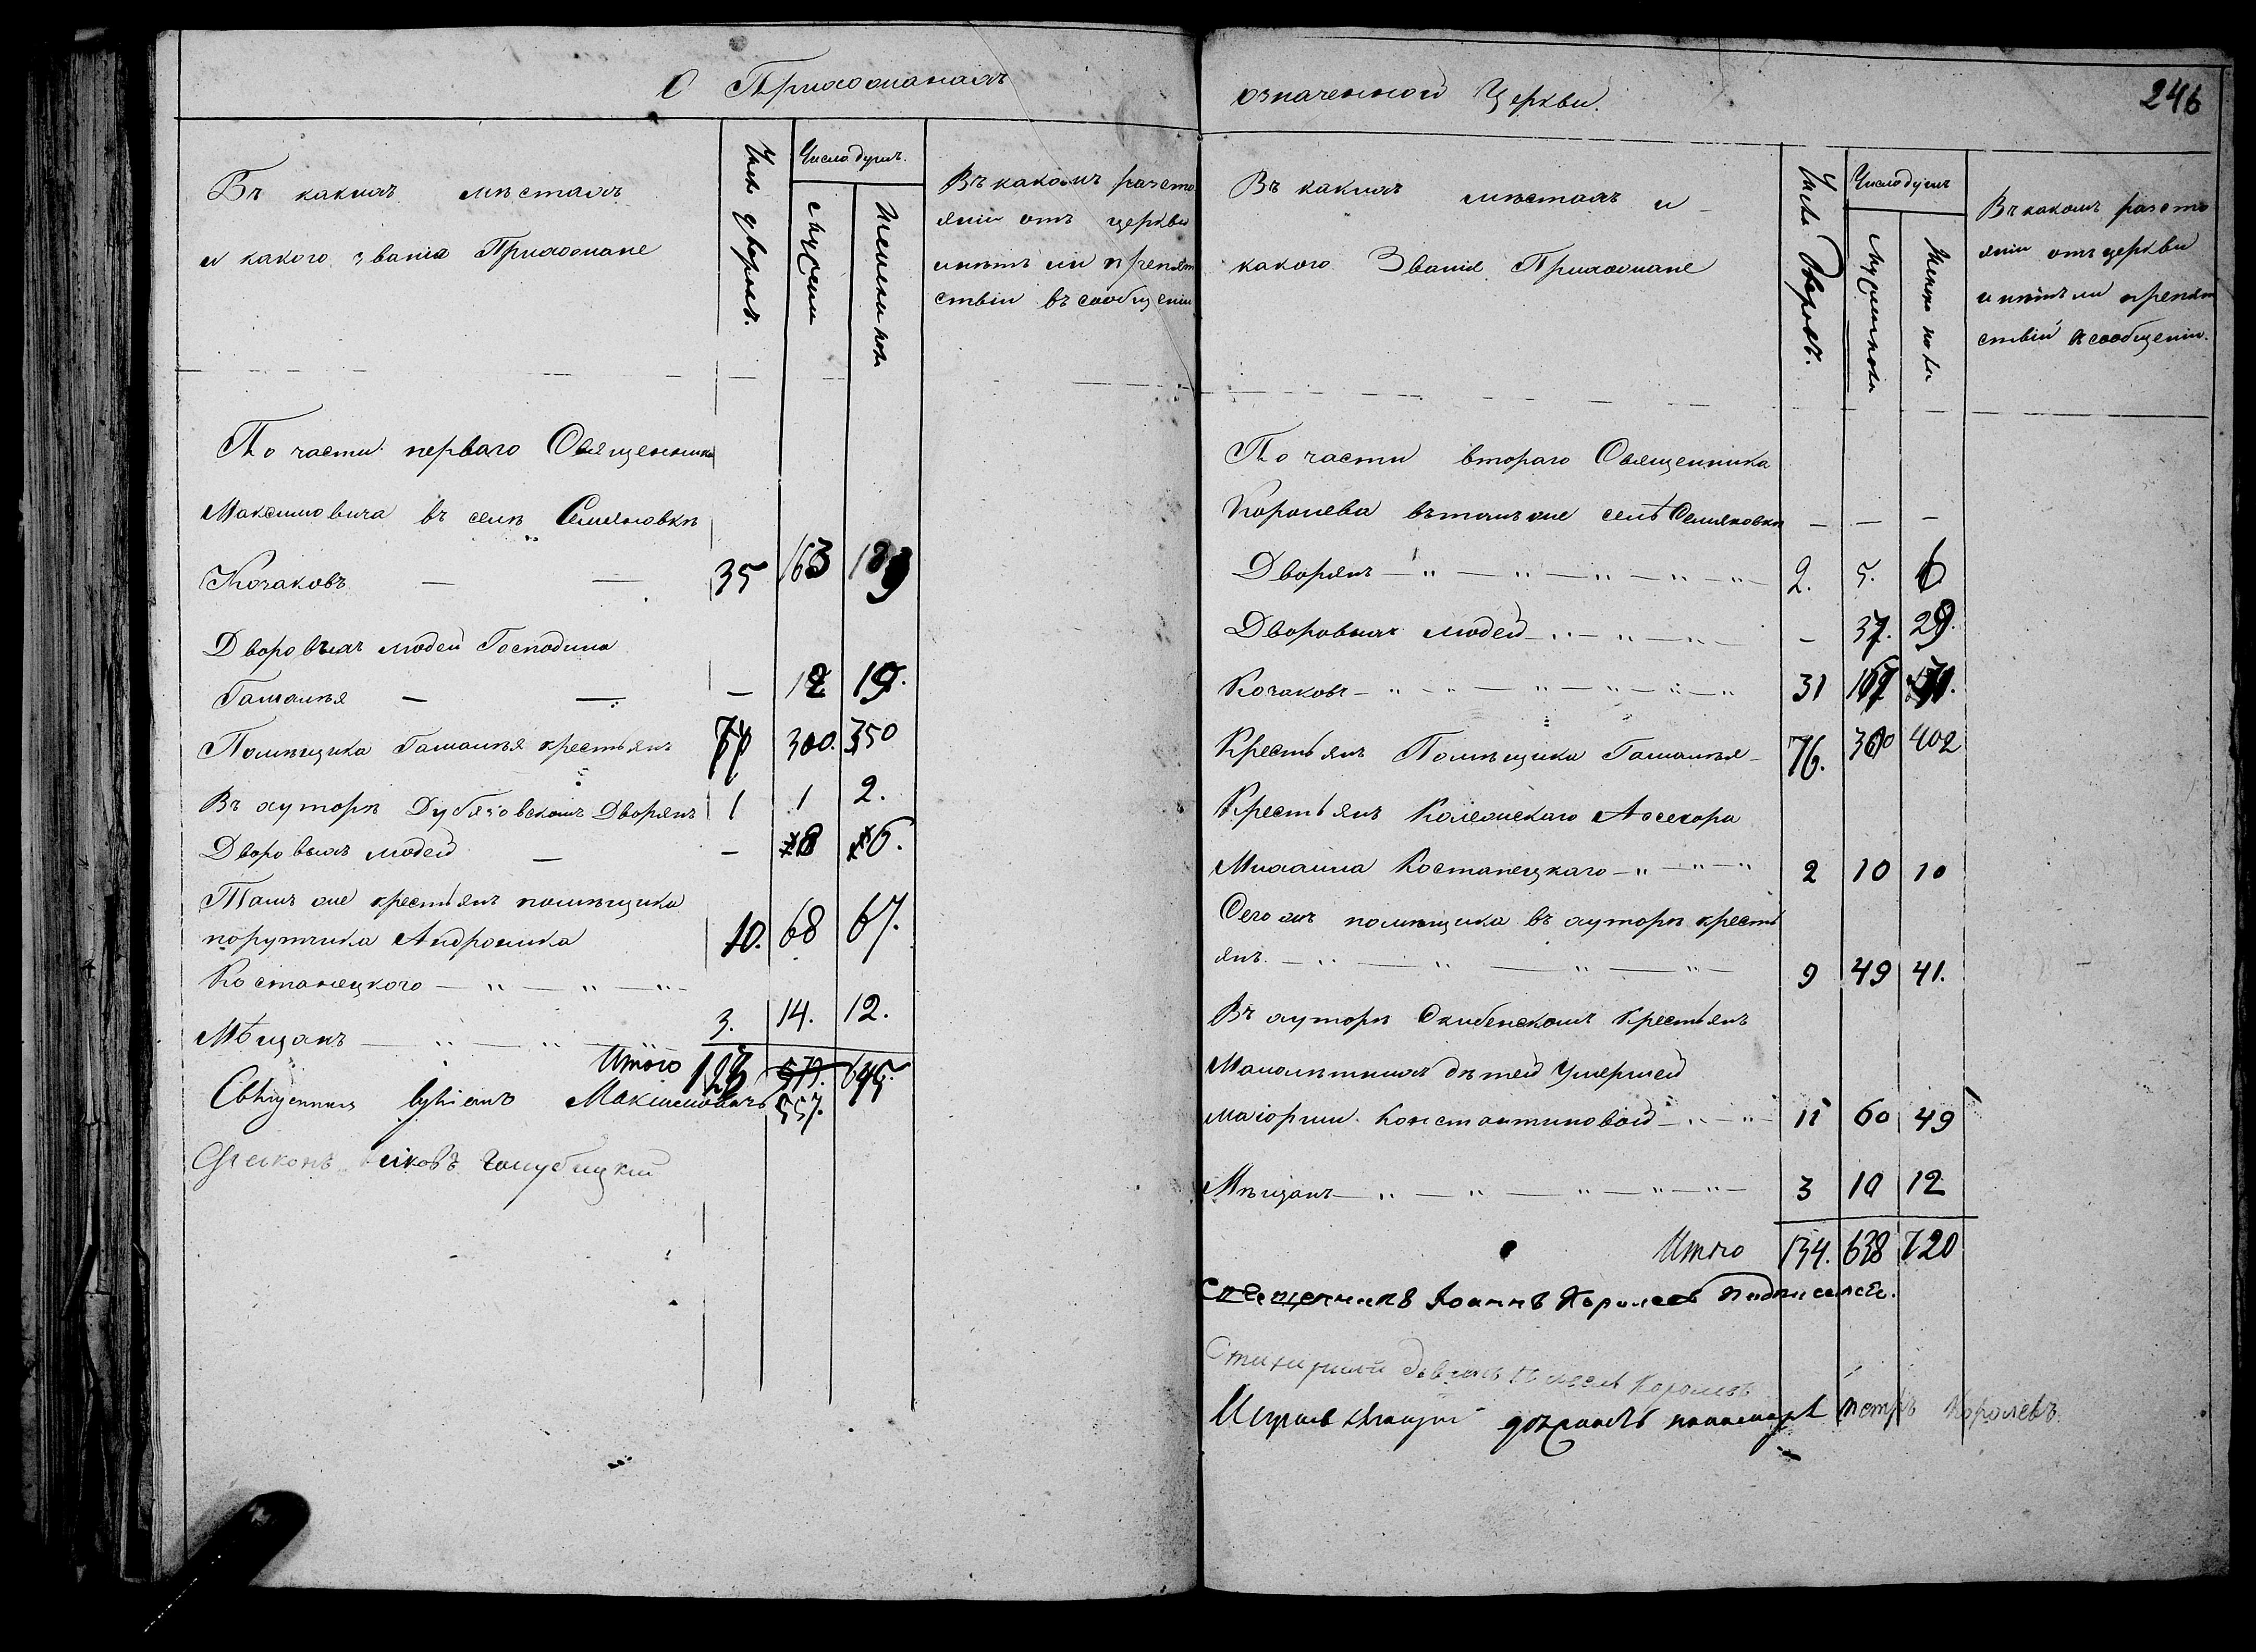 О Прихожанахъ
Въ какихъ мѣстахъ
и какого званія Прихожане
Число дворовъ.
Число душъ.
Мужеска
Женска пола
Въ какомъ разсто
яніи отъ церкви
и нѣтъ ли препят
ствій въ сообщеніи
По части перваго Священника
Максимовича въ селѣ Семяновкѣ
Козаковъ — — 35 163 183
Дворовыхъ людей Господина
Гамалѣя — — — 12 19.
Помѣщика Гамалѣя крестьянъ 77 300. 350
Въ хуторѣ Дубязовскомъ Дворянъ 1 1 2.
Дворовыхъ людей — — 8 6.
Тамъ же крестьянъ помѣщика
порутчика Андроника 10. 68 67.
Костанецкого — " — " — " -
Мѣщанъ — " — " — 3. 14. 12.
Итого 573. 645.
Священникъ Максимовичъ 557.
Голубицкій
означенной Церкви.
246
Въ какихъ мѣстахъ и
какого Званія Прихожане
Число Дворовъ.
Число душъ
Мужеска пола
Женска пола
Въ какомъ разсто
яніи отъ церкви
и нѣтъ ли препят
ствій въ сообщеніи.
По части втораго Священника
Королева въ томъ же селѣ Семяновки — — —
Дворянъ — " — " — " — " — " — 2. 5. 6
Дворовыхъ людей — " — " — " — — 37. 29.
Козаковъ — " — " — " — " — " — " 31 167 171.
Крестьянъ Помѣщика Гамалѣя — 76. 300 402
Крестьянъ Колежскаго Асесора
Михаила Костанецкаго — " — " — " 2 10 10
Сего жъ помѣщика въ хуторѣ кресть
янъ. — " — " — " — " — 9 49 41.
Въ хуторѣ Скибенскомъ Крестьянъ
Малолѣтныхъ дѣтей Умершей
маіорши Константиновой — " — " — 11 60 49
Мѣщанъ — " — " — " — " — " — 3 10 12
Итого 134. 638 720
Священникъ Іоаннъ Королевъ подписался.
Королевъ
должность пономаря Петръ Королевъ.